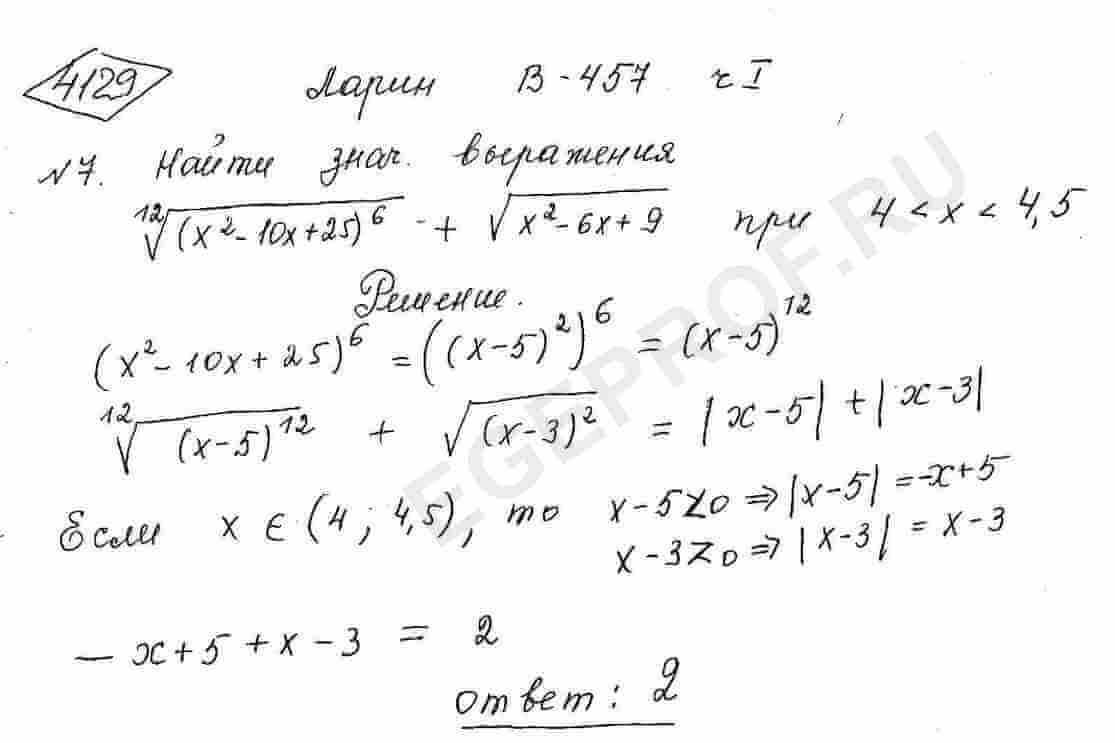 4129 Ларин В-457 ч I
№7. Найти знач. выражения
\sqrt[12]{(x²-10x+25)^6} + \sqrt{x²-6x+9} при 4 < x < 4,5
Решение.
(x²-10x+25)^6 = ((x-5)²)^6 = (x-5)^12
\sqrt[12]{(x-5)^12} + \sqrt{(x-3)²} = |x-5| + |x-3|
Если x ∈ (4; 4,5), то x-5<0 ⇒ |x-5| = -x+5
x-3>0 ⇒ |x-3| = x-3
-x+5+x-3 = 2
ответ: 2
EGEPROF.RU